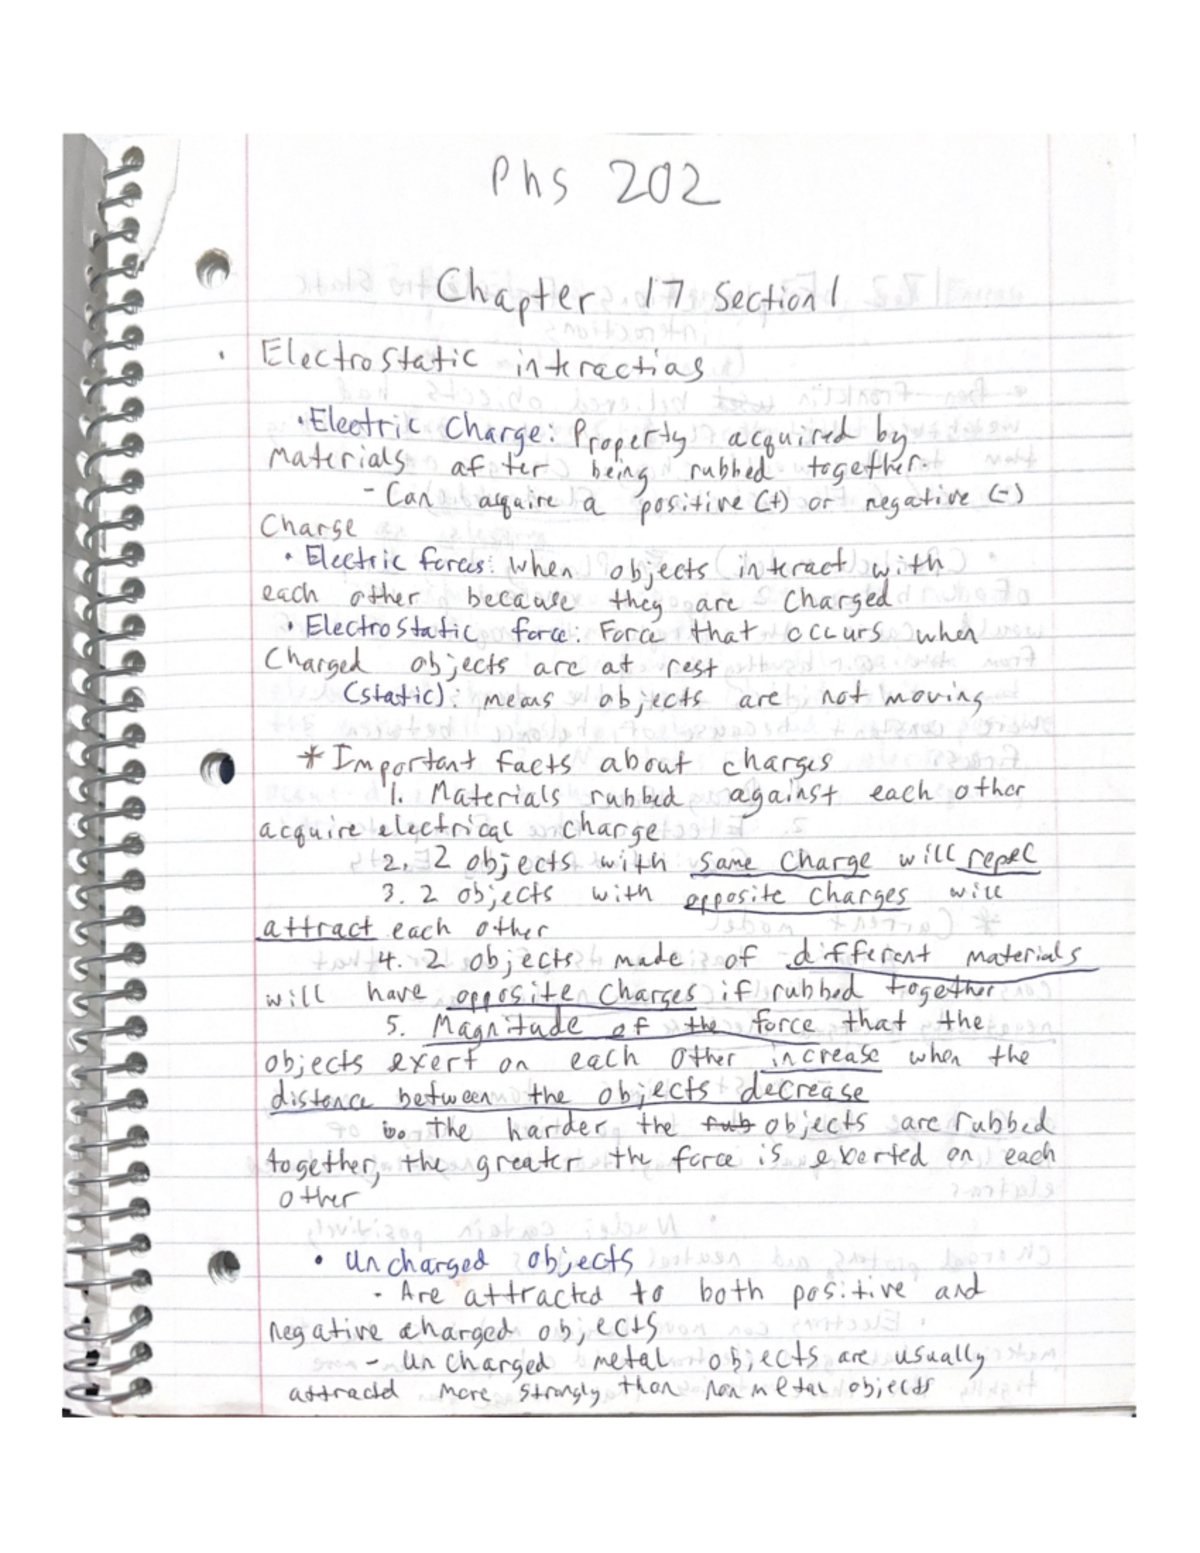 Phs 202
Chapter 17 Section 1
• Electrostatic interactions
• Electric Charge: Property acquired by
Materials after being rubbed together.
- Can aquire a positive (+) or negative (-)
Charge
• Electric forces: when objects interact with
each other because they are charged
• Electrostatic force: Force that occurs when
Charged objects are at rest
(static): means objects are not moving
* Important facts about charges
1. Materials rubbed against each other
acquire electrical charge
2. 2 objects with same charge will repel
3. 2 objects with opposite charges will
attract each other
4. 2 objects made of different materials
will have opposite charges if rubbed together
5. Magnitude of the force that the
objects exert on each other increase when the
distance between the objects decrease
6. the harder the rub objects are rubbed
together, the greater the force is exerted on each
other
• Uncharged objects
- Are attracted to both positive and
negative charged objects
- Uncharged metal objects are usually
attracted more strongly than nonmetal objects